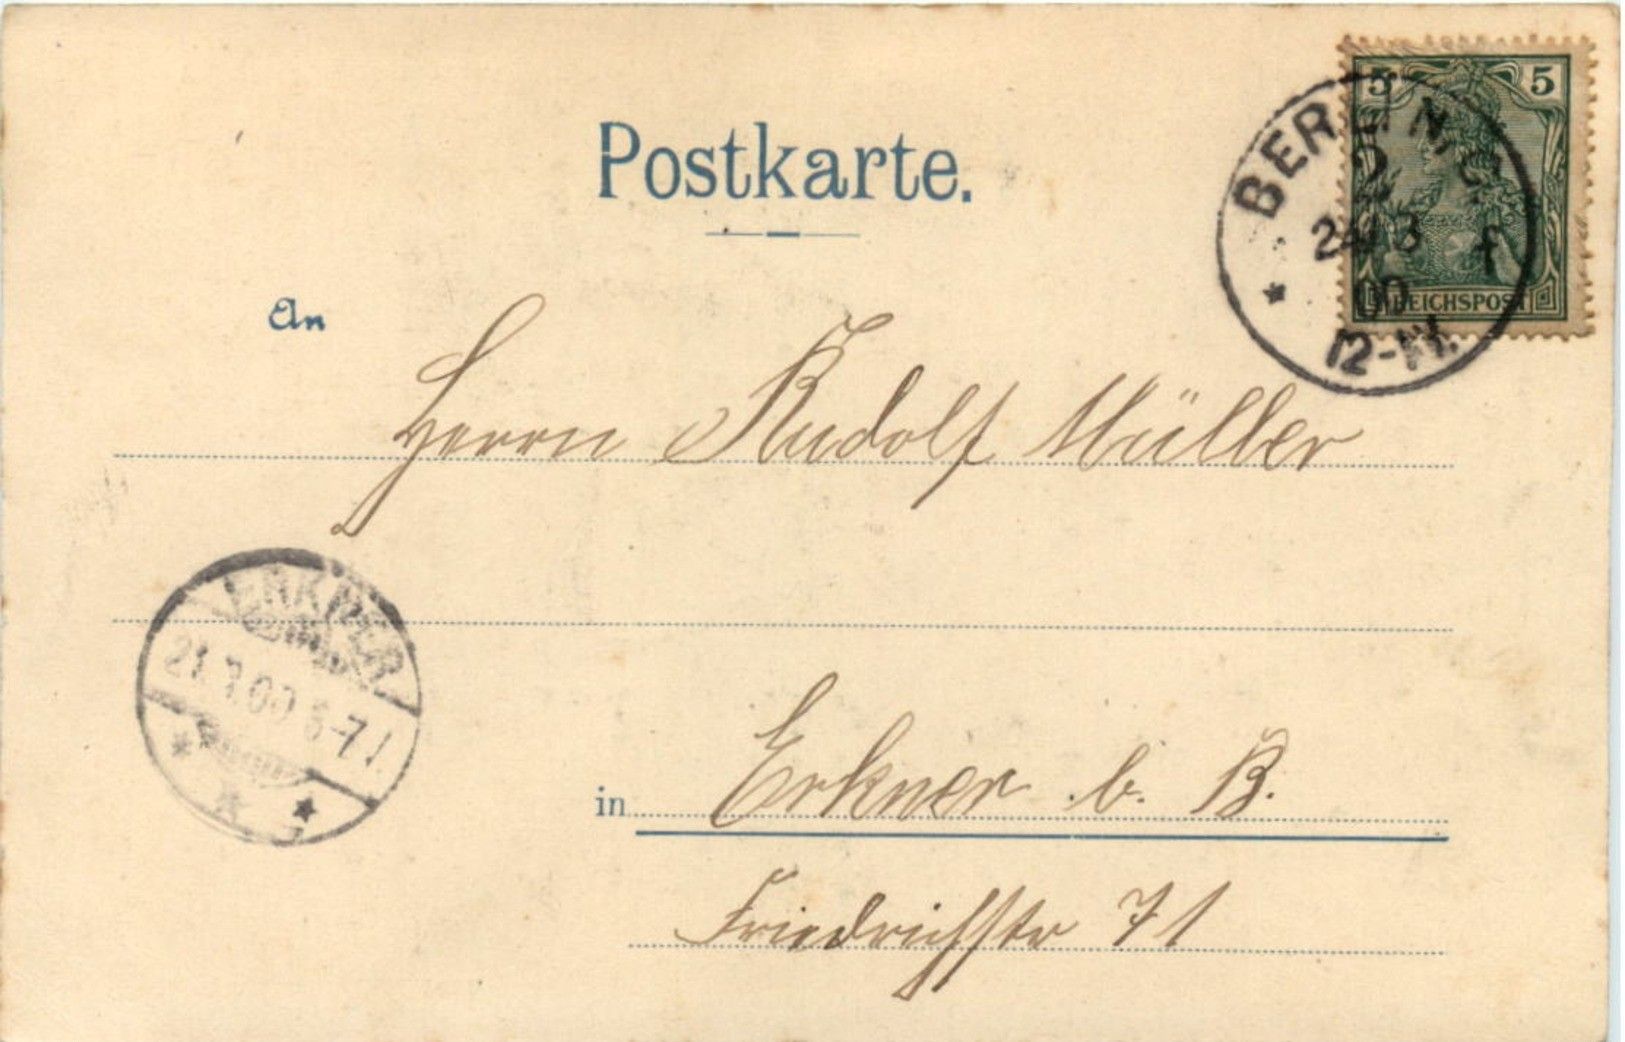 Postkarte.
5 5
REICHSPOST
BERLIN, C.
2
24/3 f
00
12-1N.
An
Herrn Rudolf Müller
ERKNER
00 6-7
in Erkner b. B.
Friedrichstr 71